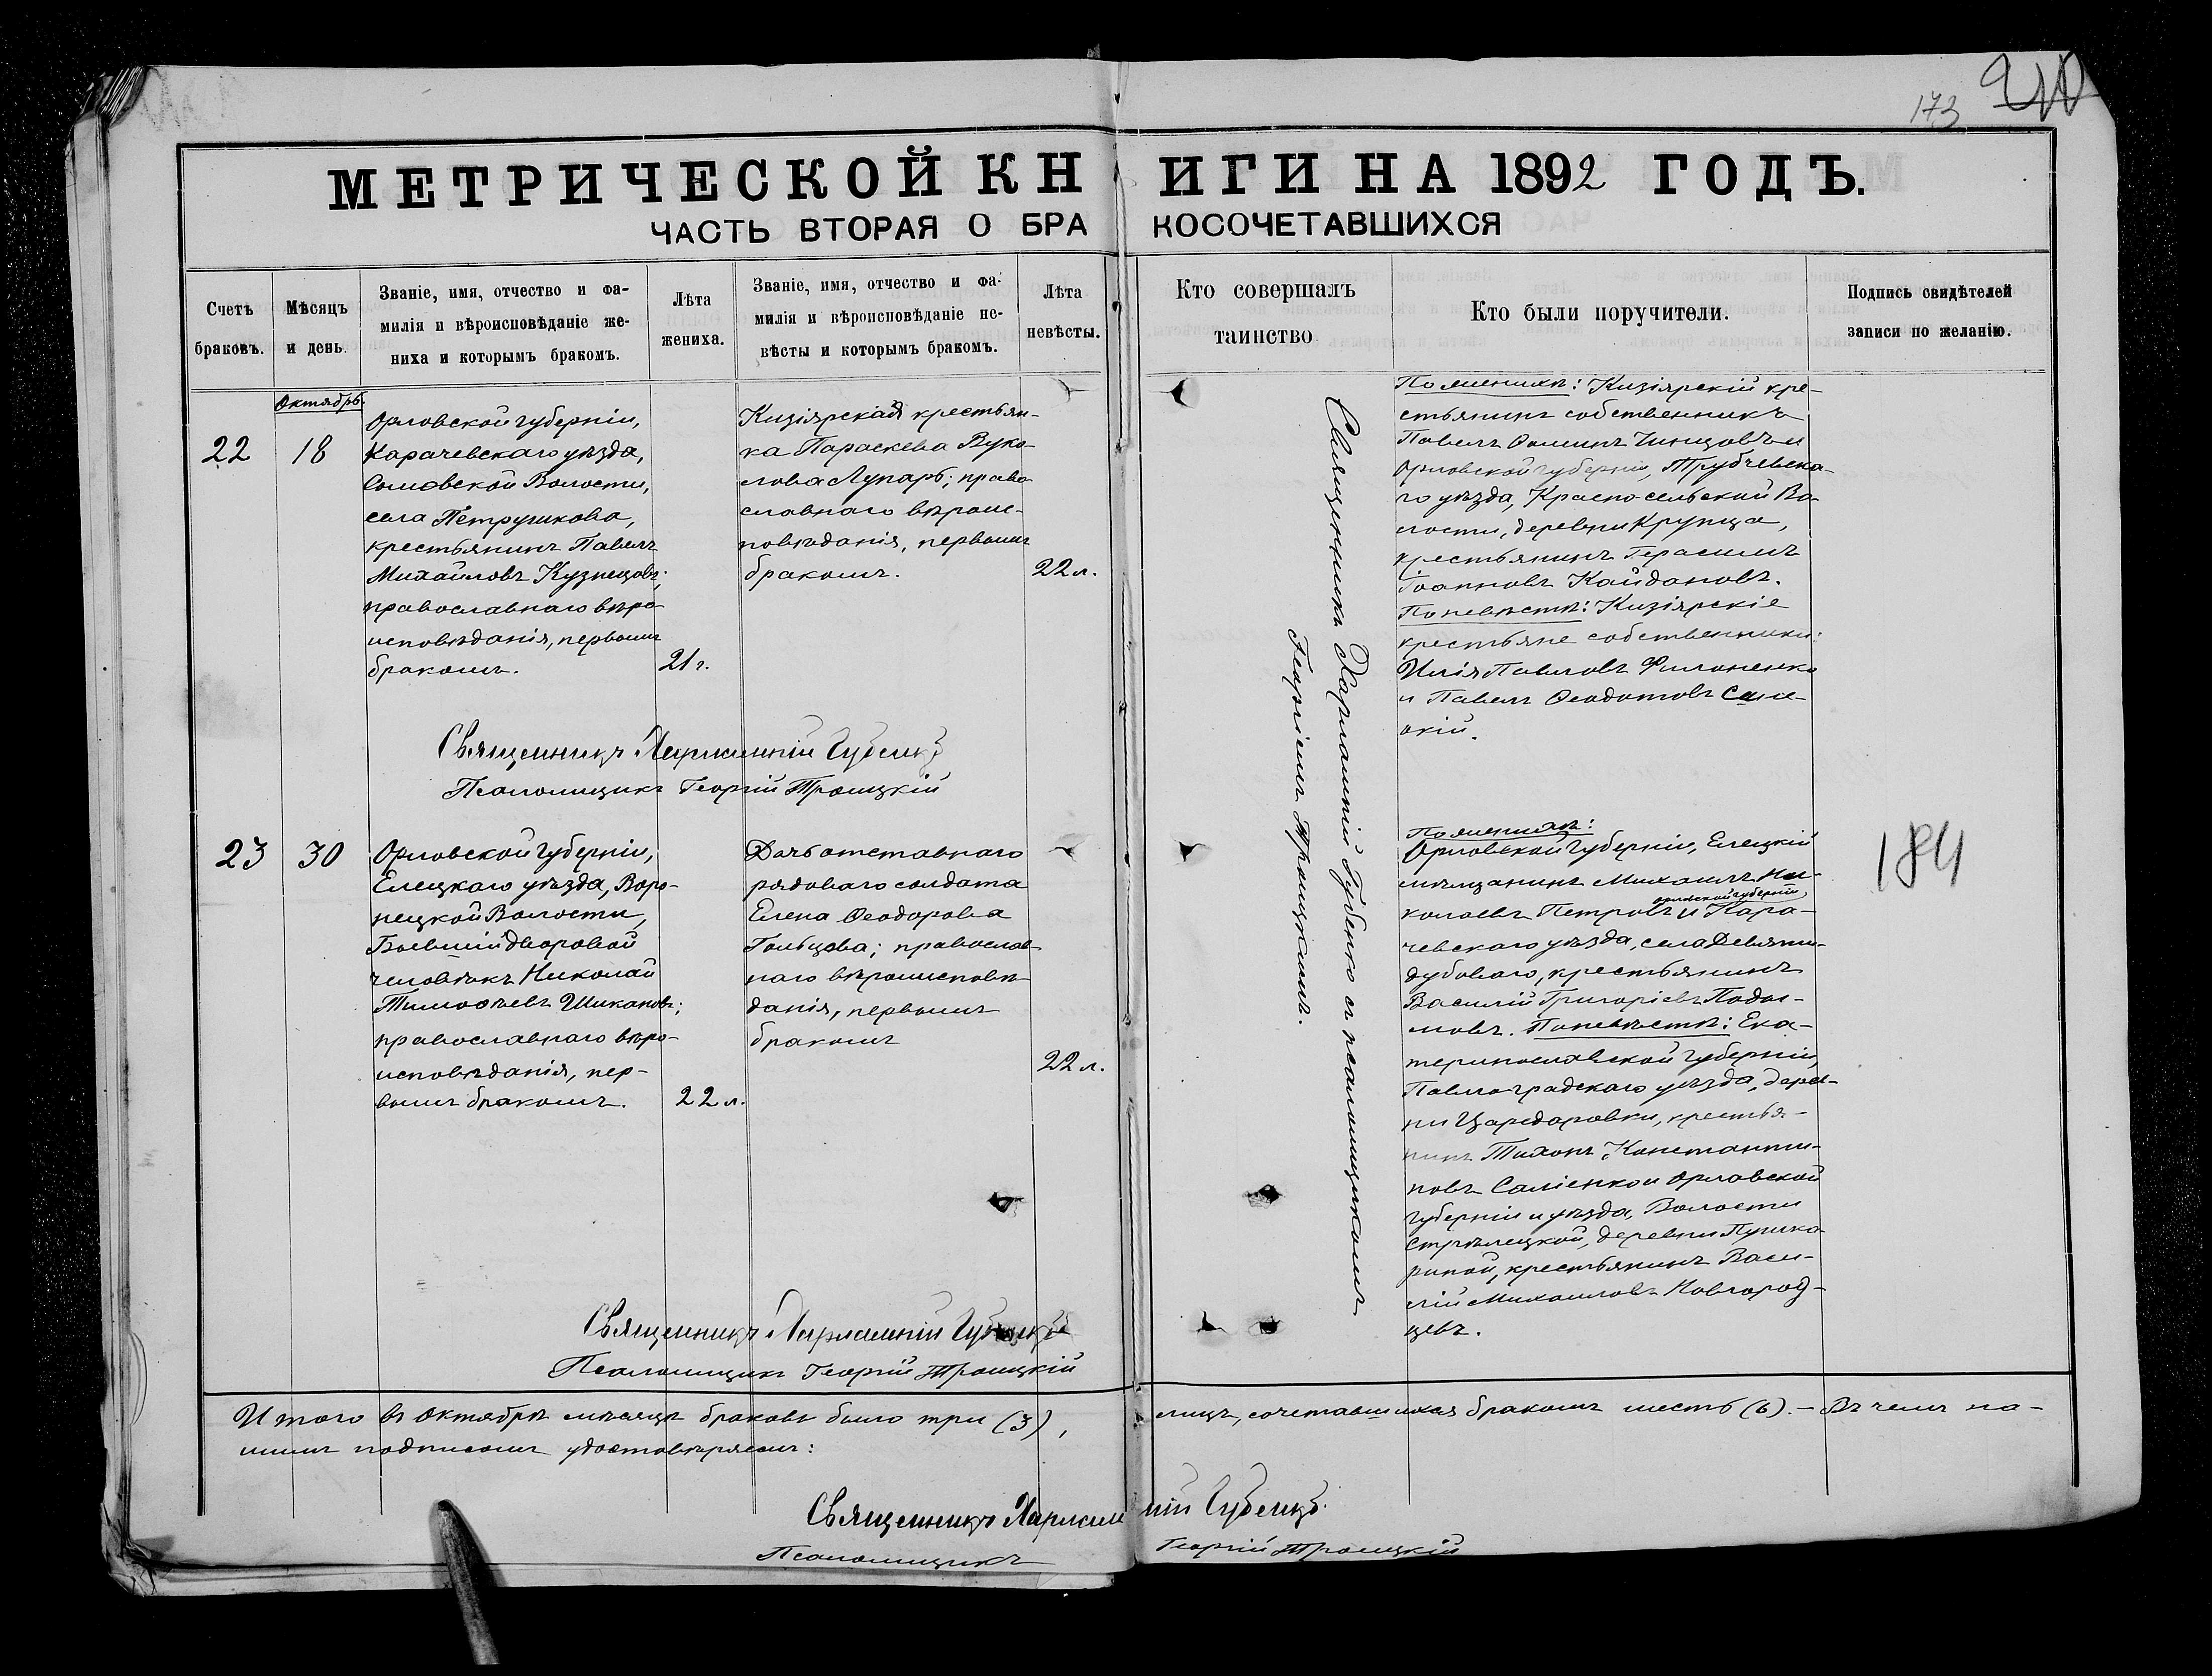 173 240
МЕТРИЧЕСКОЙ КНИГИ НА 1892 ГОДЪ.
ЧАСТЬ ВТОРАЯ О БРАКОСОЧЕТАВШИХСЯ
Счетъ
браковъ.
Мѣсяцъ
и день.
Званіе, имя, отчество и фа-
милія и вѣроисповѣданіе же-
ниха и которымъ бракомъ.
Лѣта
жениха.
Званіе, имя, отчество и фа-
милія и вѣроисповѣданіе не-
вѣсты и которымъ бракомъ.
Лѣта
невѣсты.
Кто совершалъ
таинство
Кто были поручители.
Подпись свидѣтелей
записи по желанію.
Октябрь.
22
18
Орловской губерніи,
Карачевскаго уѣзда,
Волости,
села Петрушкова,
крестьянинъ Павелъ
Михайловъ Кузнецовъ;
православнаго вѣро-
исповѣданія, первымъ
бракомъ.
21 г.
Кизіярская крестьян-
ка Параскева Вуко-
лова Лупарь; право-
славнаго вѣроис-
повѣданія, первымъ
бракомъ.
22 л.
Священникъ Харлампій Губенко съ псаломщикомъ
Георгіемъ Троицкимъ.
По женихѣ: Кизіярскій кре-
стьянинъ собственникъ
Павелъ Фоминъ и
Орловской губерніи, Трубчевска-
го уѣзда, Красносельской Во-
лости, деревни Крупца,
крестьянинъ Герасимъ
Іоанновъ Кайдановъ.
По невѣстѣ: Кизіярскіе
крестьяне собственники:
Илія Павловъ Филоненко
и Павелъ Феодотовъ
Священникъ Харлампій Губенко
Псаломщикъ Георгій Троицкій
23
30
Орловской губерніи,
Елецкаго уѣзда, Воро-
нецкой Волости,
Бывшій дворовой
человѣкъ Николай
Тимофѣевъ Шикановъ;
православнаго вѣро-
исповѣданія, пер-
вымъ бракомъ.
22 л.
Дочь отставнаго
рядоваго солдата
Елена Феодорова
Гольцова; православ-
наго вѣроисповѣ-
данія, первымъ
бракомъ
22 л.
По женихѣ:
Орловской губерніи, Елецкій
мѣщанинъ Михаилъ Ни-
орловской губерніи,
колаевъ Петровъ и Кара-
чевскаго уѣзда, села Девяти-
дубоваго, крестьянинъ
Василій Григоріевъ Поды-
мовъ. По невѣстѣ: Ека-
теринославской губерніи,
Павлоградскаго уѣзда, дерев-
ни Царедаровки, крестья-
нинъ Тихонъ Константи-
новъ Саліенко и Орловской
губерніи и уѣзда, Волости
Стрѣлецкой, деревни Пушка-
риной, крестьянинъ Васи-
лій Михаиловъ Новгород-
цевъ.
184
Священникъ Харлампій Губенко
Псаломщикъ Георгій Троицкій
Итого въ Октябрѣ мѣсяцѣ браковъ было три (3), лицъ, сочетавшихся бракомъ шесть (6). – Въ чемъ на-
шимъ подписомъ удостовѣряемъ:
Священникъ Харлампій Губенко.
Псаломщикъ Георгій Троицкій